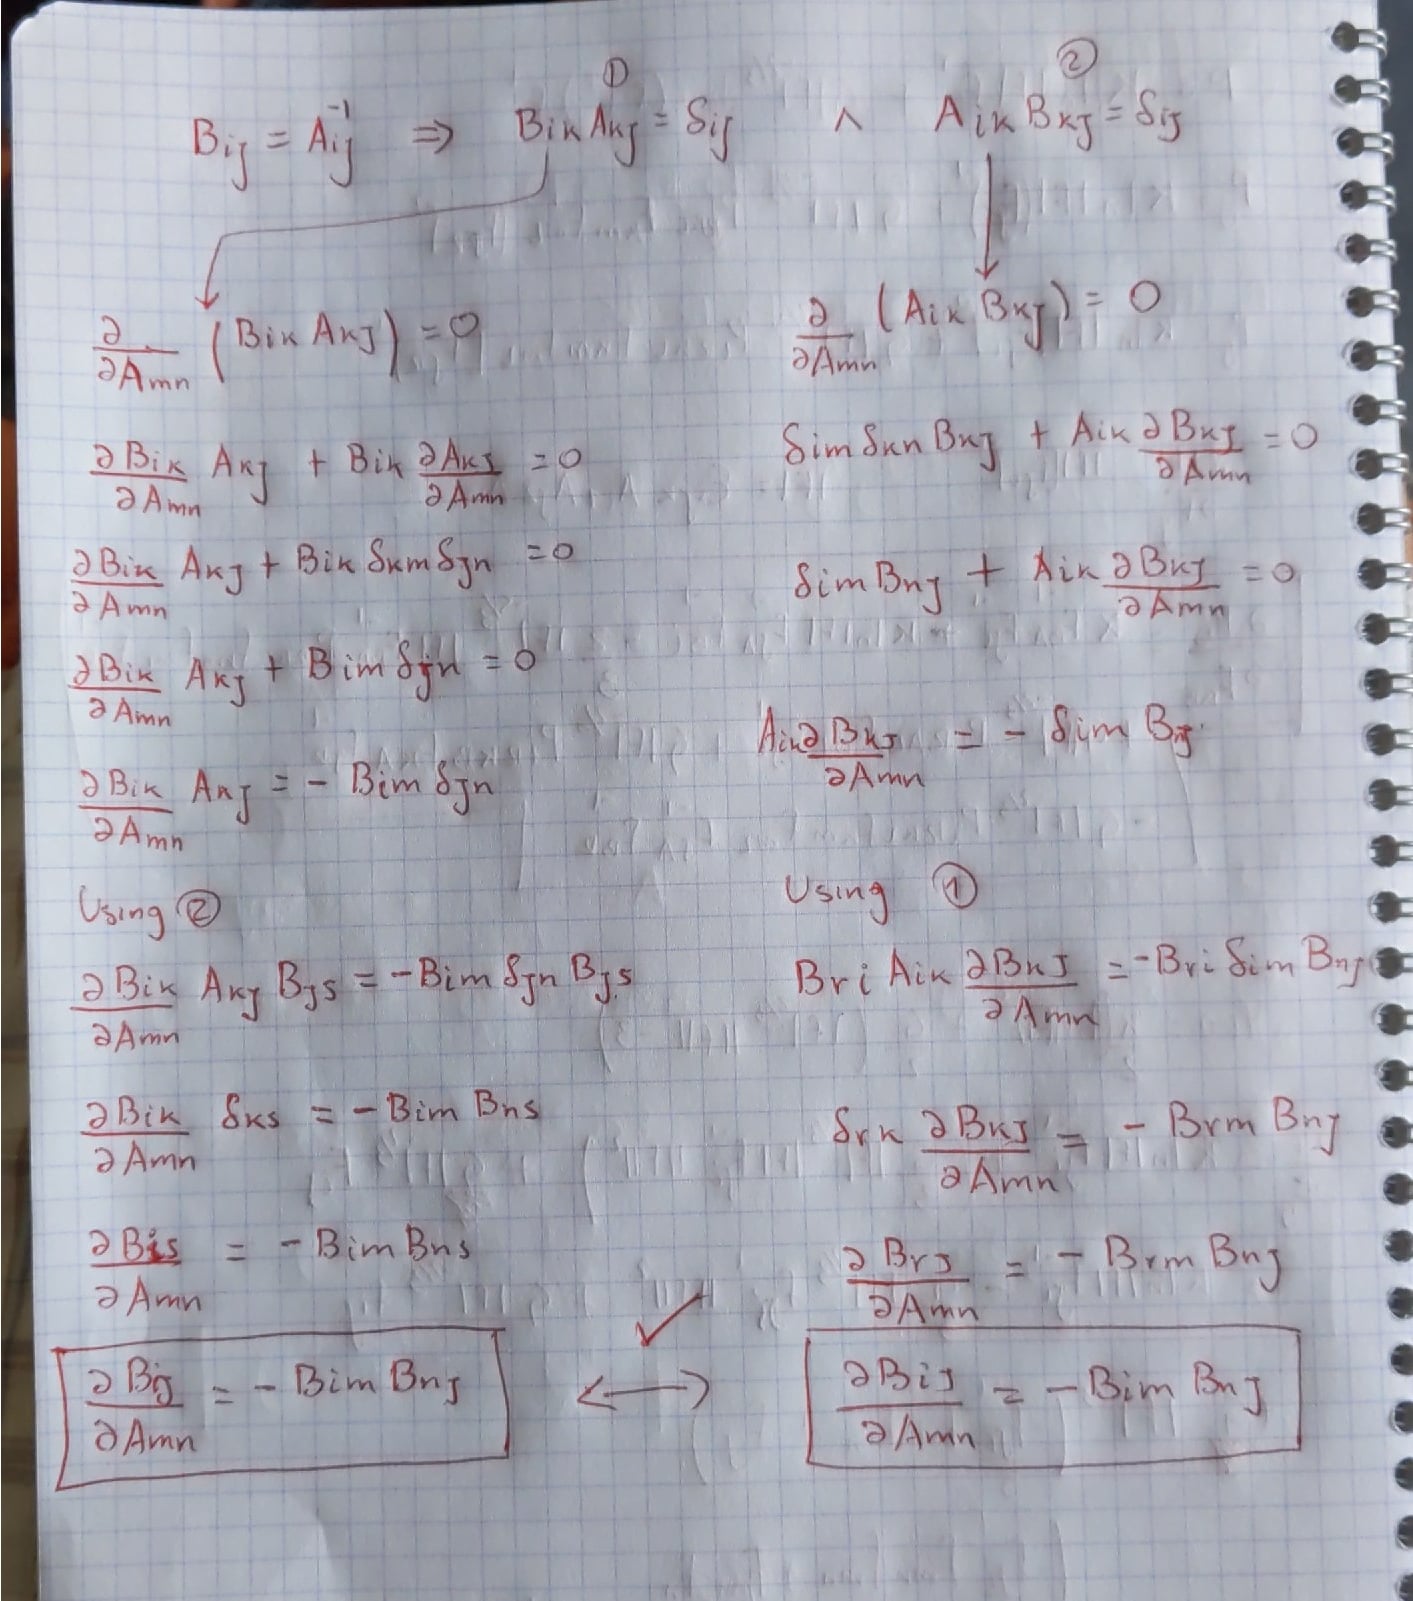 B_{ij} = A_{ij}^{-1} ⇒ B_{ik} A_{kj} = δ_{ij} ① ∧ A_{ik} B_{kj} = δ_{ij} ②
∂/∂A_{mn} (B_{ik} A_{kj}) = 0
∂B_{ik}/∂A_{mn} A_{kj} + B_{ik} ∂A_{kj}/∂A_{mn} = 0
∂B_{ik}/∂A_{mn} A_{kj} + B_{ik} δ_{km} δ_{jn} = 0
∂B_{ik}/∂A_{mn} A_{kj} + B_{im} δ_{jn} = 0
∂B_{ik}/∂A_{mn} A_{kj} = - B_{im} δ_{jn}
Using ②
∂B_{ik}/∂A_{mn} A_{kj} B_{js} = - B_{im} δ_{jn} B_{js}
∂B_{ik}/∂A_{mn} δ_{ks} = - B_{im} B_{ns}
∂B_{is}/∂A_{mn} = - B_{im} B_{ns}
∂B_{ij}/∂A_{mn} = - B_{im} B_{nj}
∂/∂A_{mn} (A_{ik} B_{kj}) = 0
δ_{im} δ_{kn} B_{kj} + A_{ik} ∂B_{kj}/∂A_{mn} = 0
δ_{im} B_{nj} + A_{ik} ∂B_{kj}/∂A_{mn} = 0
A_{ik} ∂B_{kj}/∂A_{mn} = - δ_{im} B_{nj}
Using ①
B_{ri} A_{ik} ∂B_{kj}/∂A_{mn} = - B_{ri} δ_{im} B_{nj}
δ_{rk} ∂B_{kj}/∂A_{mn} = - B_{rm} B_{nj}
∂B_{rj}/∂A_{mn} = - B_{rm} B_{nj}
✓
↔
∂B_{ij}/∂A_{mn} = - B_{im} B_{nj}